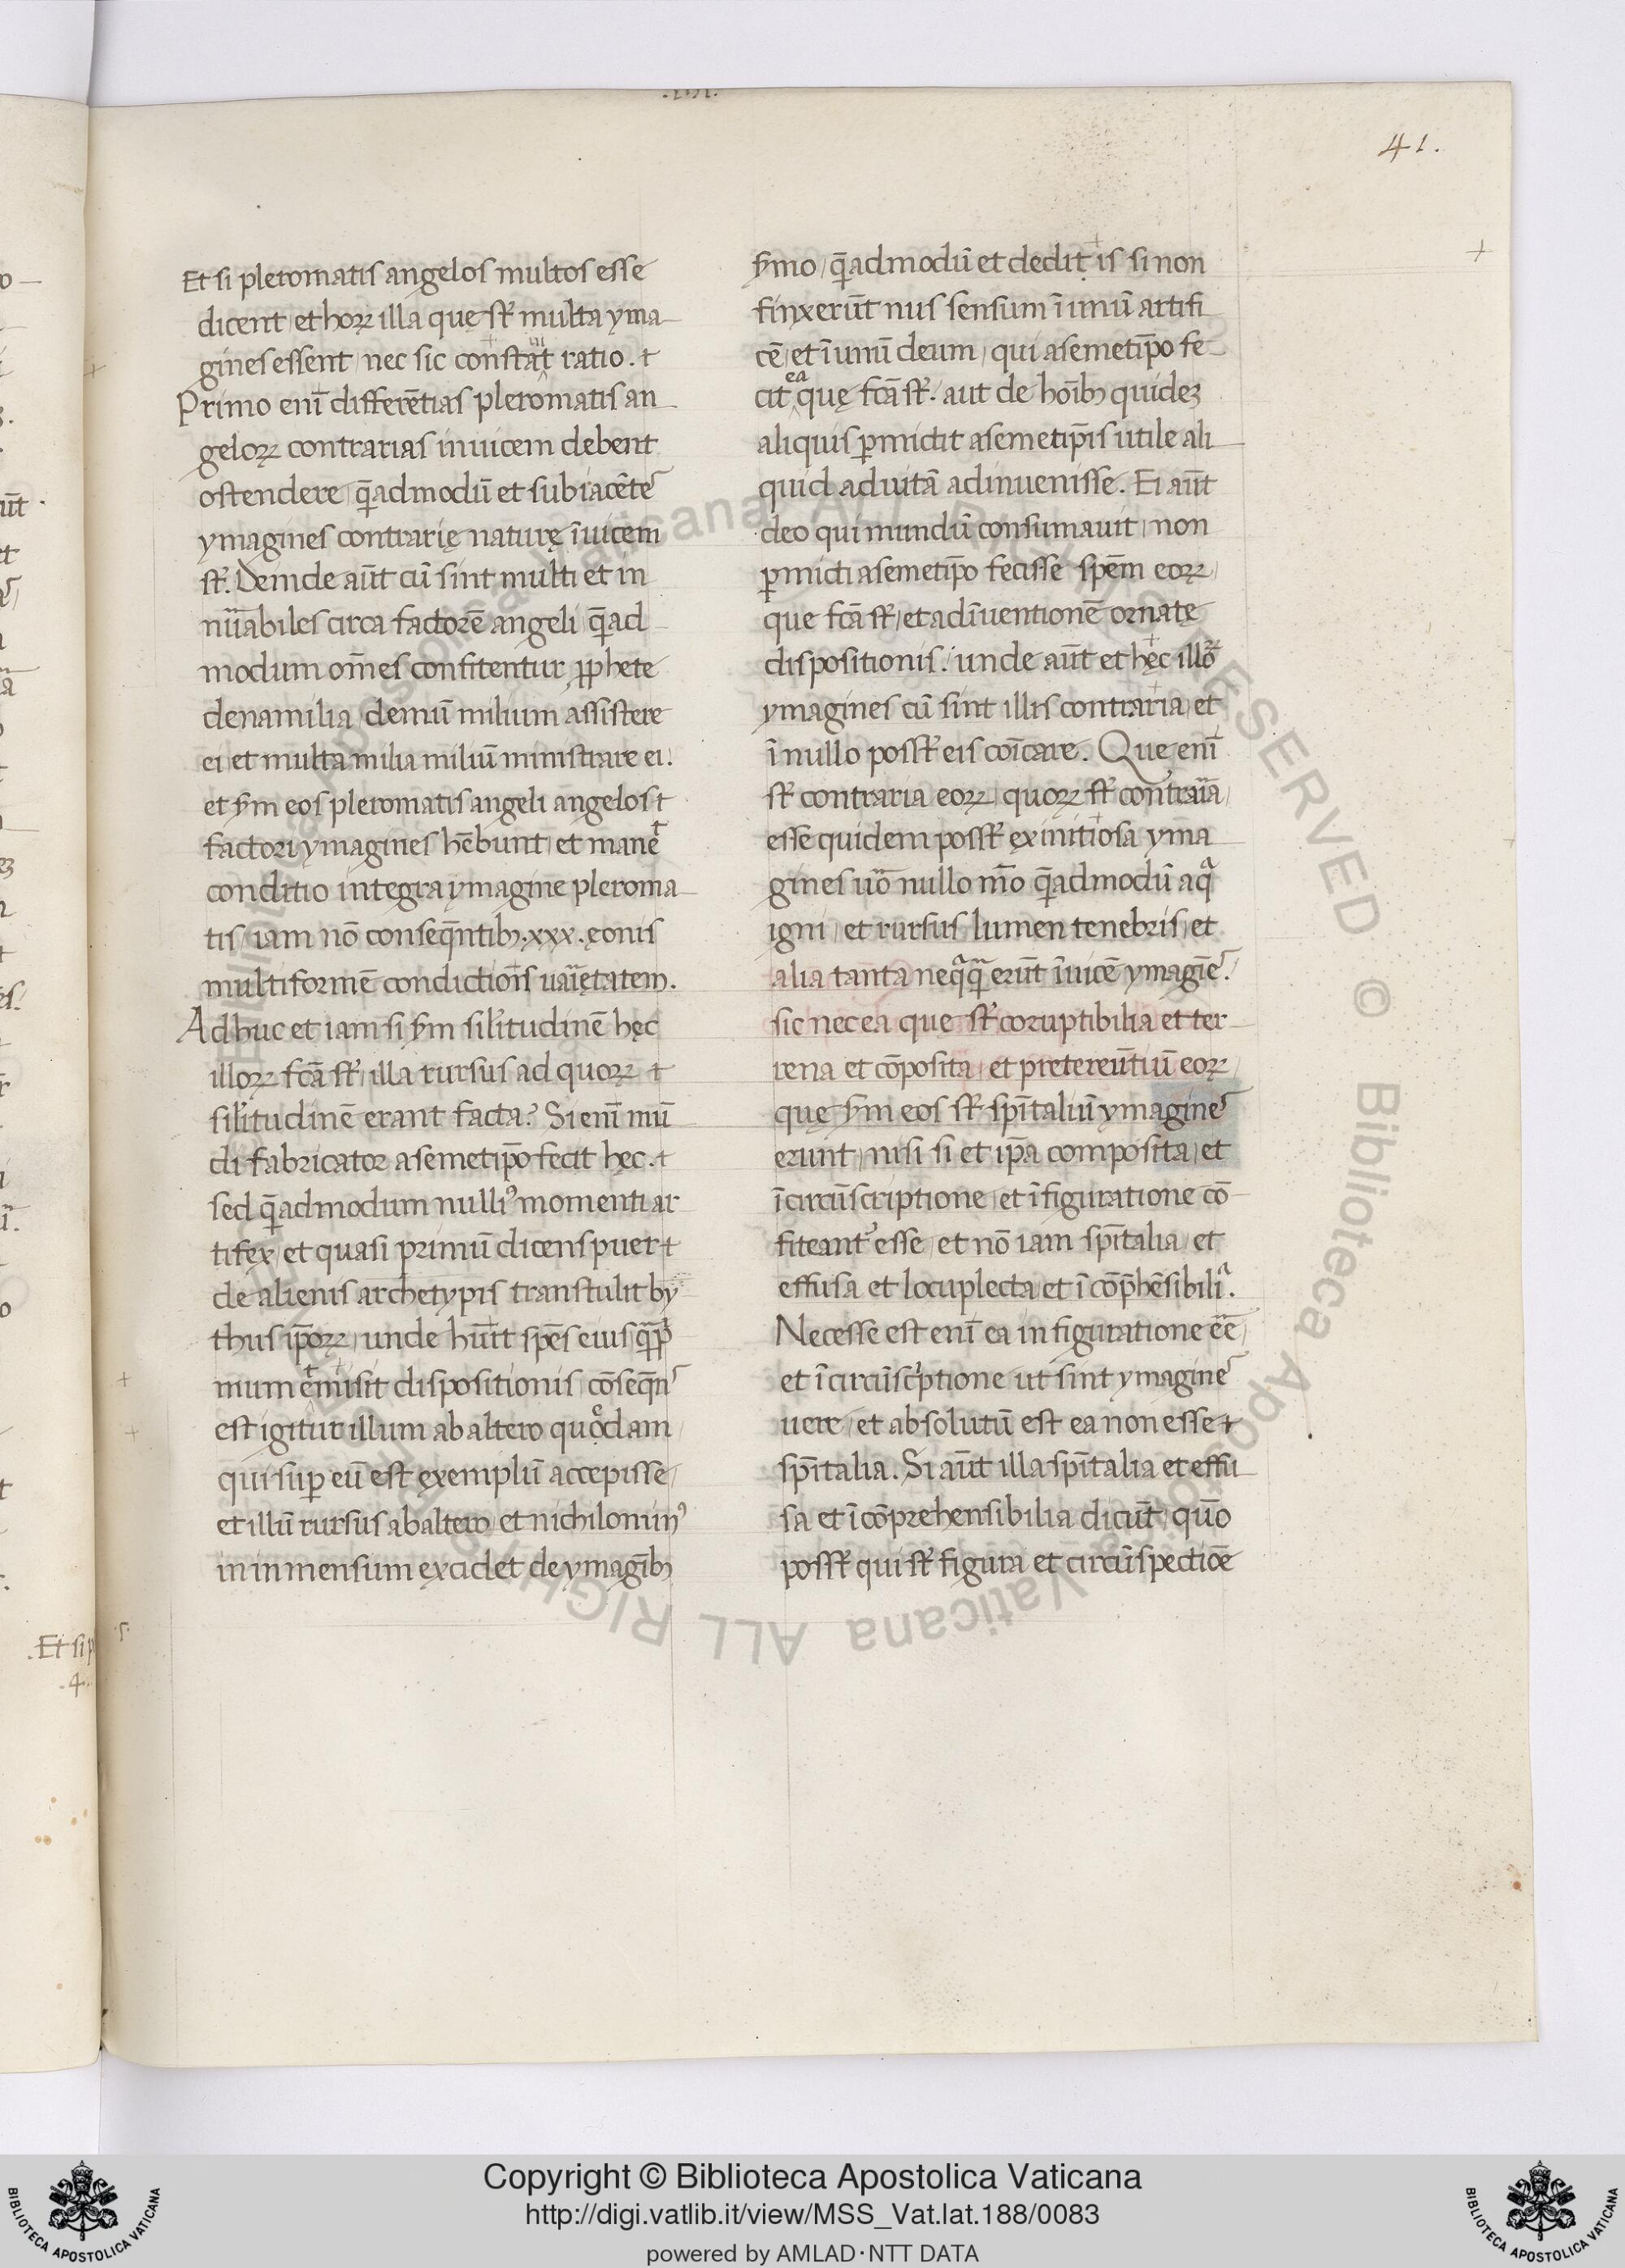 41.
Et si pleromatis angelos multos esse
dicent / et horꝝ illa quę st̄ multa yma
gines essent / nec sic constat ratio .
Primo enī differētias pleromatis an
gelorꝝ contrarias inuicem debent
ostendere / quēadmodū et subiacētes
ymagines contrarię naturę īuicem
st̄. Deinde aūt cū sint multi et in
nūabiles circa factorē angeli / quēad
modum om̄es confitentur / ꝓphete
dena milia / demū milium assistere
ei / et multa milia miliū ministrare ei.
et sm̄ eos pleromatis angeli angelos
factori ymagines hēbunt / et manet
conditio integra ymagine pleroma
tis / iam nō conseq̄ntibꝫ .xxx. ęonis
multiformē condictiōis uaīetatem.
Adhuc et iam si sm̄ silitudinē hęc
illorꝝ fc̄a st̄ / illa rursus ad quorꝝ
silitudinē erant facta? Si enī mū
di fabricator a semetip̄o fecit hęc .
sed quēadmodum nulliꝰ momenti ar
tifex / et quasi primū dicens puer
de alienis archetypis transtulit by
thus ip̄orꝝ / unde hūit spēs eius
mum emisit dispositionis / cōseq̄ns
est igitur illum ab altero quodam /
qui suꝑ eū est exemplū accepisse /
et illū rursus ab altero / et nichilominꝰ
in inmensum excidet de ymagībꝫ
sm̄o / quēadmodū et dedit is si non
finxerūt nus sensum ī unū artifi
cē / et ī unū deum / qui a semetip̄o fe
cit ea quę fc̄a st̄. aut de hoībꝫ quideꝫ
aliquis ꝑmictit a semetip̄is utile ali
quid ad uitā adinuenisse. Ei aūt
deo qui mundū consumauit / non
ꝑmicti a semetip̄o fecisse spēm eorꝝ /
que fc̄a st̄ / et adīuentionē ornatę
dispositionis. unde aūt et hęc illoꝝ
ymagines cū sint illis contraria / et
ī nullo posst̄ eis coīcare. Que enī
st̄ contraria eorꝝ / quorꝝ st̄ contraīa /
esse quidem posst̄ exinitiosa yma
gines uō nullo mō quēadmodū aqua
igni / et rursus lumen tenebris / et
alia tanta neqꝗ̄ erūt īuicē ymagīes.
sic nec ea que st̄ coruptibilia et ter
rena et cōposita / et pretereūtiū eorꝝ /
quę sm̄ eos st̄ spīitaliū ymagines
erunt / nisi si et ip̄a composita / et
ī circūscriptione / et ī figuratione cō
fiteantᷣ esse / et nō iam spīitalia / et
effusa et locuplecta / et ī cōp̄hēsibilia.
Necesse est enī ea in figuratione eē̄ /
et ī circūscp̄tione ut sint ymagines
uere / et absolutū est ea non esse
spīitalia. Si aūt illa spīitalia et effu
sa et ī cōprehensibilia dicūt / quō
posst̄ qui st̄ figura et circūspectiōe
Et si p
4.
Copyright © Biblioteca Apostolica Vaticana
http://digi.vatlib.it/view/MSS_Vat.lat.188/0083
powered by AMLAD·NTT DATA